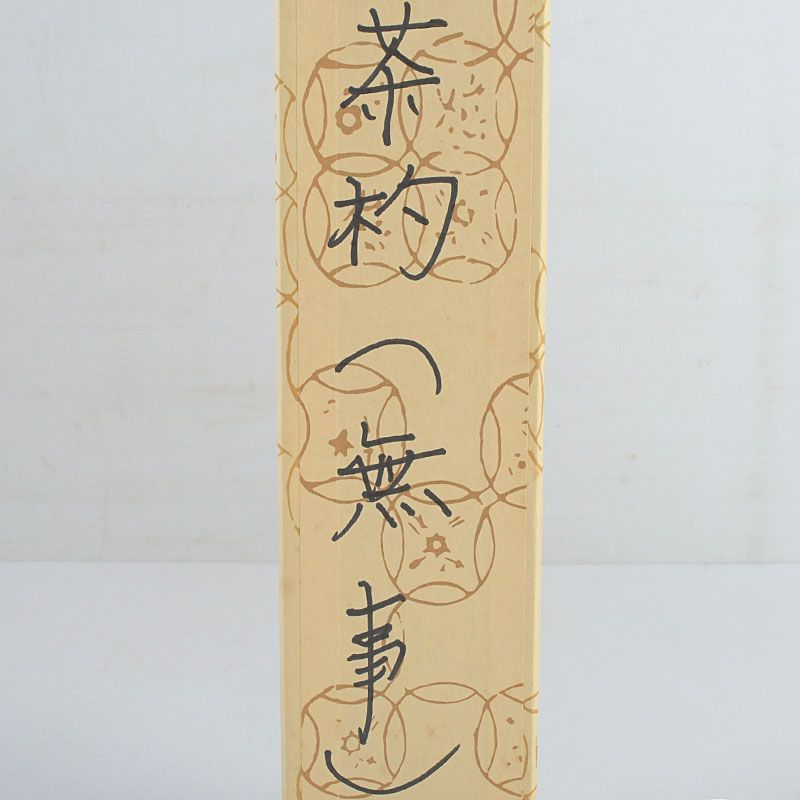 茶杓（無事）